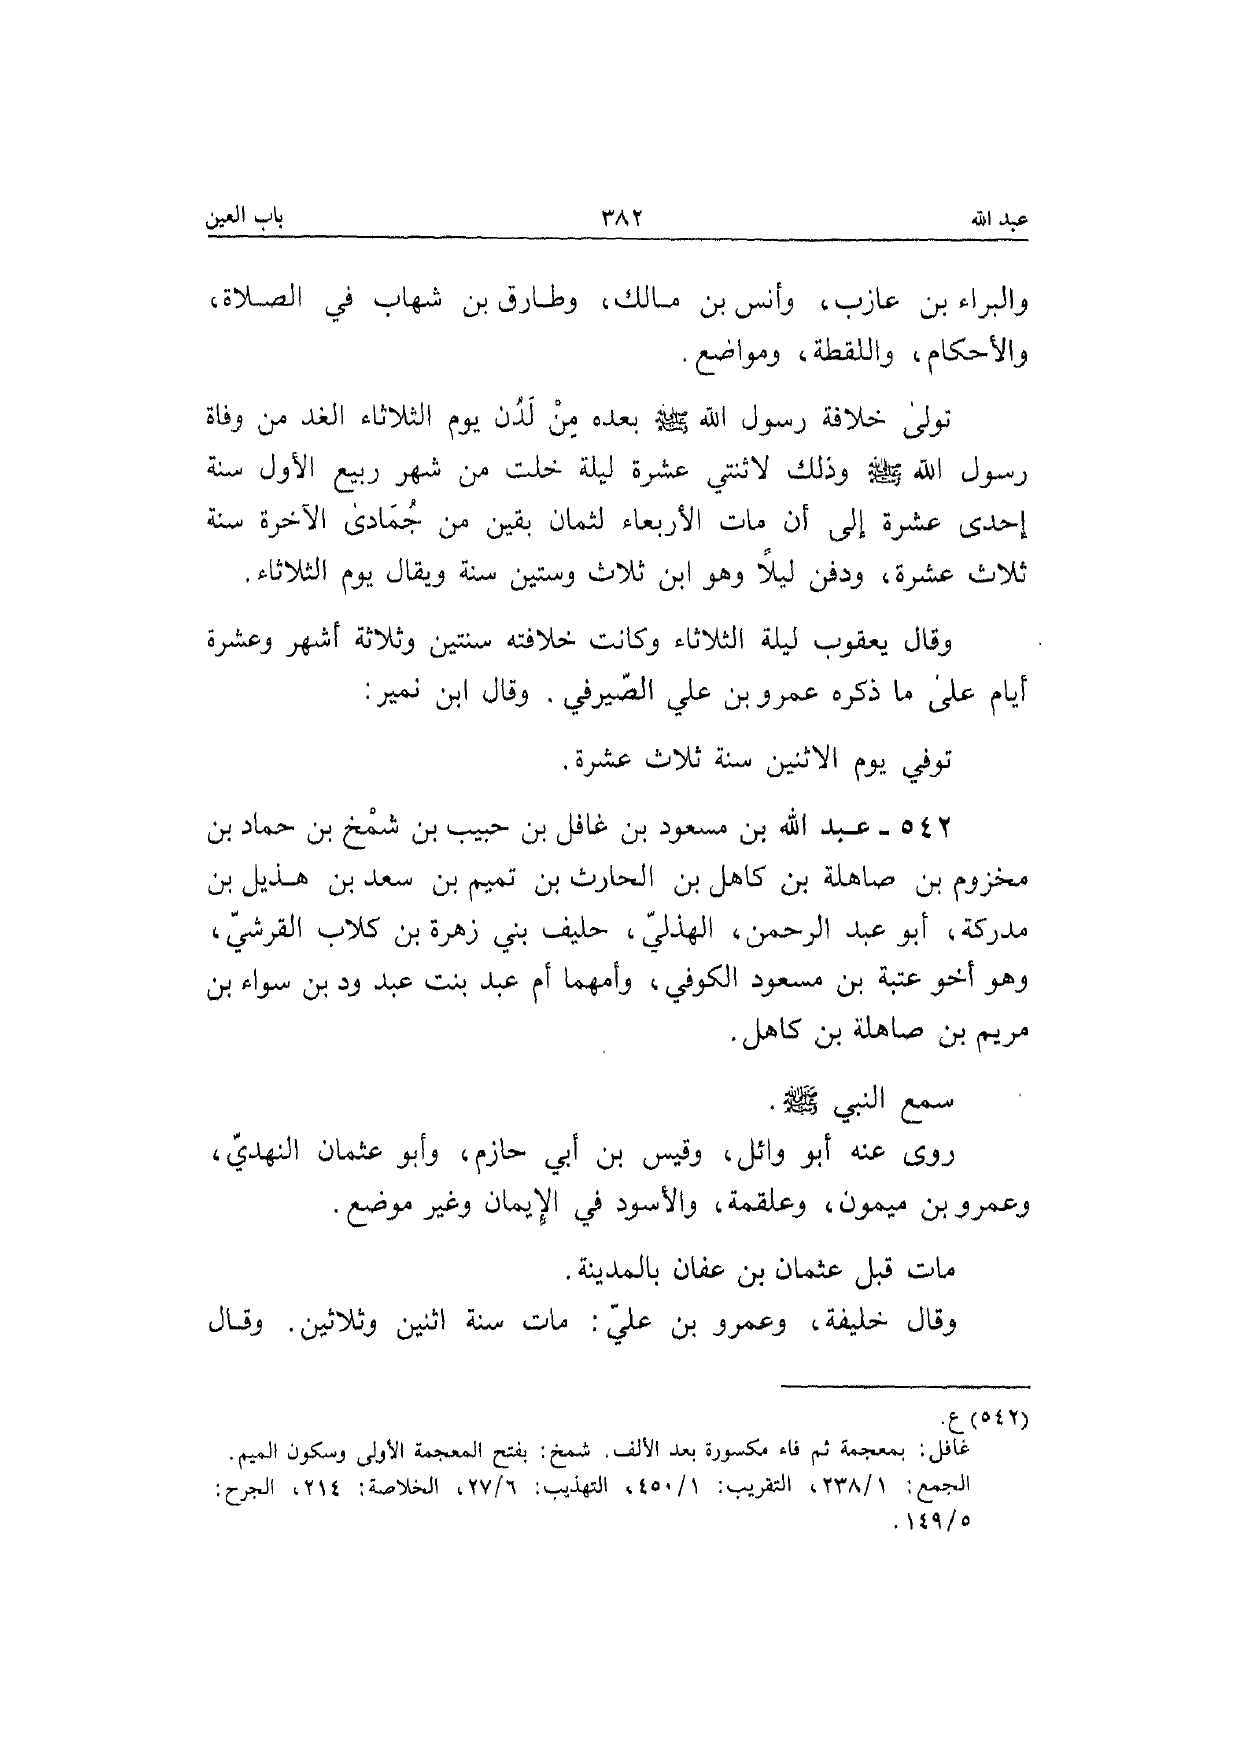 عبد الله ٣٨٢ باب العين
والبراء بن عازب، وأنس بن مالك، وطارق بن شهاب في الصلاة،
والأحكام، واللقطة، ومواضع.
تولىٰ خلافة رسول الله ﷺ بعده مِنْ لَدُن يوم الثلاثاء الغد من وفاة
رسول الله ﷺ وذلك لاثنتي عشرة ليلة خلت من شهر ربيع الأول سنة
إحدى عشرة إلى أن مات الأربعاء لثمان بقين من جُمَادىٰ الآخرة سنة
ثلاث عشرة، ودفن ليلاً وهو ابن ثلاث وستين سنة ويقال يوم الثلاثاء.
وقال يعقوب ليلة الثلاثاء وكانت خلافته سنتين وثلاثة أشهر وعشرة
أيام علىٰ ما ذكره عمرو بن علي الصّيرفي. وقال ابن نمير:
توفي يوم الاثنين سنة ثلاث عشرة.
٥٤٢ ـ عبد الله بن مسعود بن غافل بن حبيب بن شمْخ بن حماد بن
مخزوم بن صاهلة بن كاهل بن الحارث بن تميم بن سعد بن هذيل بن
مدركة، أبو عبد الرحمن، الهذليّ، حليف بني زهرة بن كلاب القرشيّ،
وهو أخو عتبة بن مسعود الكوفي، وأمهما أم عبد بنت عبد ود بن سواء بن
مريم بن صاهلة بن كاهل.
سمع النبي ﷺ.
روى عنه أبو وائل، وقيس بن أبي حازم، وأبو عثمان النهديّ،
وعمرو بن ميمون، وعلقمة، والأسود في الإيمان وغير موضع.
مات قبل عثمان بن عفان بالمدينة.
وقال خليفة، وعمرو بن عليّ: مات سنة اثنين وثلاثين. وقال
(٥٤٢) ع.
غافل: بمعجمة ثم فاء مكسورة بعد الألف. شمخ: بفتح المعجمة الأولى وسكون الميم.
الجمع: ٢٣٨/١، التقريب: ٤٥٠/١، التهذيب: ٢٧/٦، الخلاصة: ٢١٤، الجرح:
١٤٩/٥.